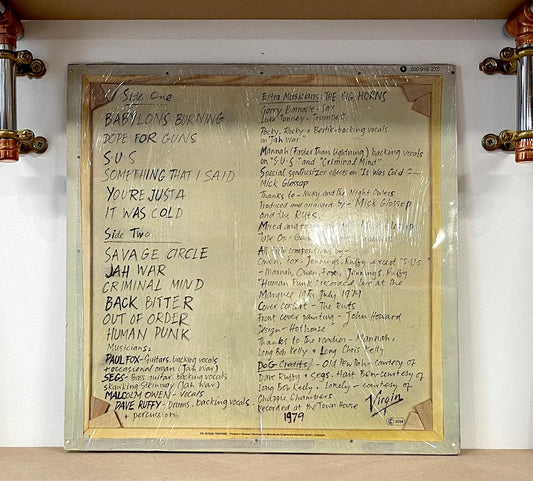 200 955-270
Side One
BABYLONS BURNING
DOPE FOR GUNS
S·U·S
SOMETHING THAT I SAID
YOU'RE JUST A
IT WAS COLD
Side Two
SAVAGE CIRCLE
JAH WAR
CRIMINAL MIND
BACK BITER
OUT OF ORDER
HUMAN PUNK
Musicians:
PAUL FOX - Guitars, backing vocals
+ occasional organ (Jah War)
SEGS - Bass guitar, backing vocals
skanking Steinway (Jah War)
MALCOLM OWEN - vocals
DAVE RUFFY - Drums, backing vocals
+ percussion
Extra Musicians: THE BIG HORNS
Garry Barnacle - Sax
Luke Tunney - Trumpet
Rocky, Rocky + Bertie - backing vocals
on "Jah War"
Mannah (Faster Than Lightning) backing vocals
on "S·U·S" and "Criminal Mind"
Special synthesizer effects on "It Was Cold" -
Mick Glossop
Thanks to - Nicky and the Night Owlers
Produced and arranged by - Mick Glossop
and the Ruts.
Mixed and
Tape Op -
All compositions by -
Owen, Fox, Jennings, Ruffy, except "S·U·S"
- Mannah, Owen, Fox, Jennings, Ruffy
"Human Punk" recorded live at the
Marquee 19th July 1979
Cover concept - The Ruts
Front cover painting - John Howard
Design - Hothouse
Thanks to the roadies - Mannah,
Long Bob Kelly + Long Chris Kelly
DoG Credits) - Old Pew Bob - courtesy of
Dave Ruffy + Segs. Hairt Ben - courtesy of
Long Bob Kelly. Lonely - courtesy of
Chalkie Chambers
Recorded at the Town House
1979
Virgin